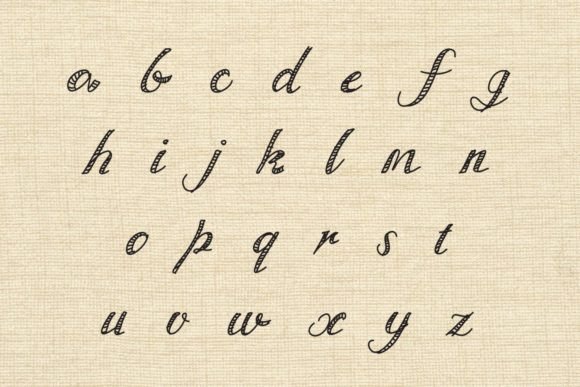 a b c d e f g
h i j k l m n
o p q r s t
u v w x y z